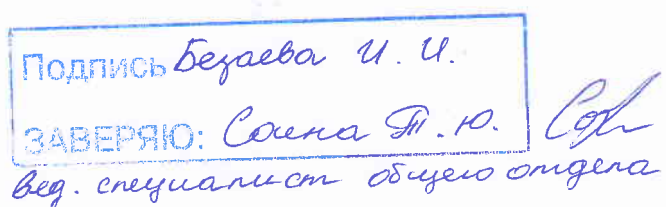 Подпись Безаева И. И.
ЗАВЕРЯЮ: Соена Т. Ю.
вед. специалист общего отдела